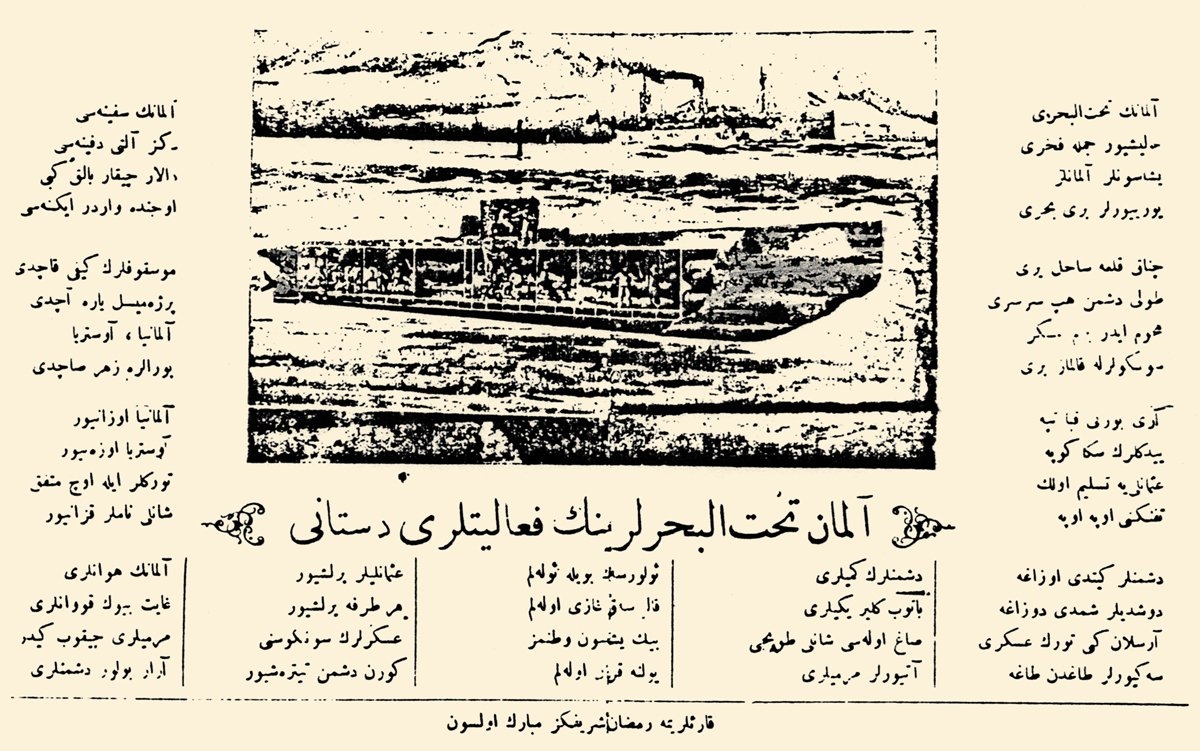 آلمانك تحت البحری
چالیشیور جمله فخری
یشاسونلر آلمانلر
یوریورلر بری بحری
چناق قلعه ساحل بری
طولی دشمن هپ سرسری
هجوم ایدر
قالماز بری
بورنی قبا تپه
سكا كوپه
عثمانلی‌یه تسلیم اولك
تفنكنی اوپه اوپه
آلمانك سفینه‌سی
آلتی دفینه‌سی
طالار چیقار بالق كبی
اوجنده واردر ایكنه‌سی
موسقوفلرك كیفی قاچدی
پرژه‌میسل یاره آچدی
آلمانیا، آوستریا
بورالره زهر صاچدی
آلمانیا اوزانیور
آوستریا اوزه‌نیور
توركلر ایله اوچ متفق
شانلی ناملر قزانیور
آلمان تحت البحرلرینك فعالیتلری دستانی
دشمنلر كیتدی اوزاغه
دوشدیلر شمدی دوزاغه
آرسلان كبی تورك عسكری
سه‌كیورلر طاغدن طاغه
دشمنلرك كمیلری
باتوب كلیر یكیلری
صاغ اوله‌سی شانلی طوپجی
آتیورلر مرمیلری
ئولورسه‌ك بویله ئوله‌لم
قالیرسه‌ق غازی اوله‌لم
بیك یشاسون وطنمز
یولنه قربان اوله‌لم
عثمانلیلر برلشیور
هر طرفه یرلشیور
عسكرلرك سونكوسنی
كورن دشمن تیتره‌شیور
آلمانك هوانلری
غایت بیوك قووانلری
مرمیلری چیقوب كیدر
آرار بولور دشمنلری
قارئلریمه رمضان شریفكز مبارك اولسون